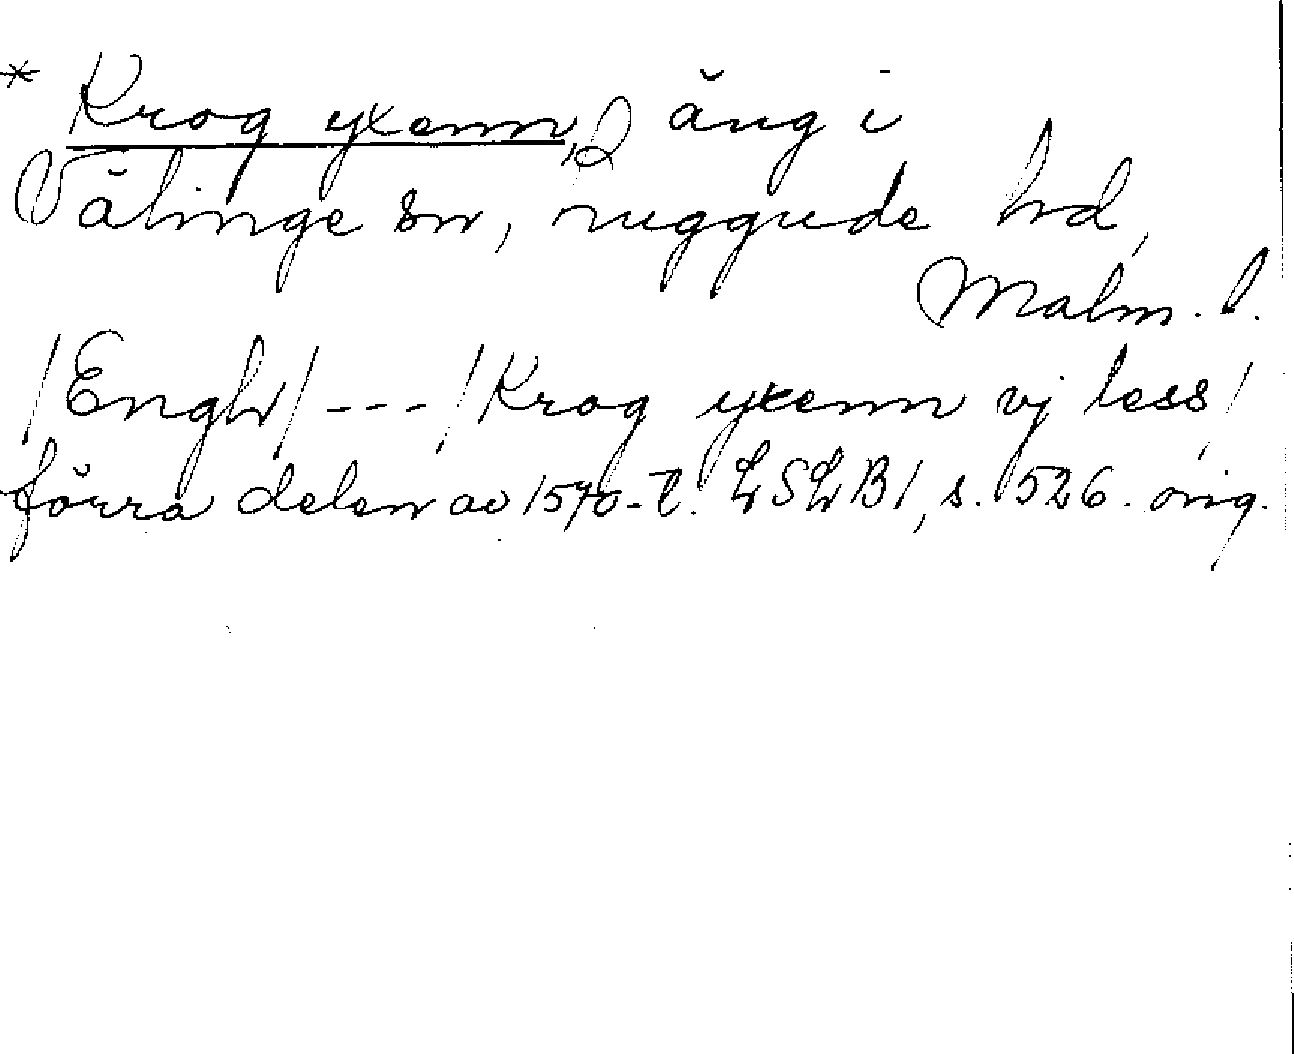 * Krog yxenn, äng i
Välinge sn, Luggude hd,
Malm. l.
/Engh/ --- /Krog yxenn vj less/
förra delen av 1570-t. LSLB 1, s. 526. orig.